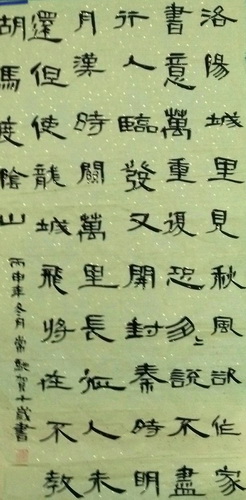 洛陽城里見秋風欲作家
書意萬重復恐匆〻說不盡
行人臨發又開封秦時明
月漢時關萬里長征人未
還但使龍城飛將在不教
胡馬度陰山
丙申年冬月常賀十歲書